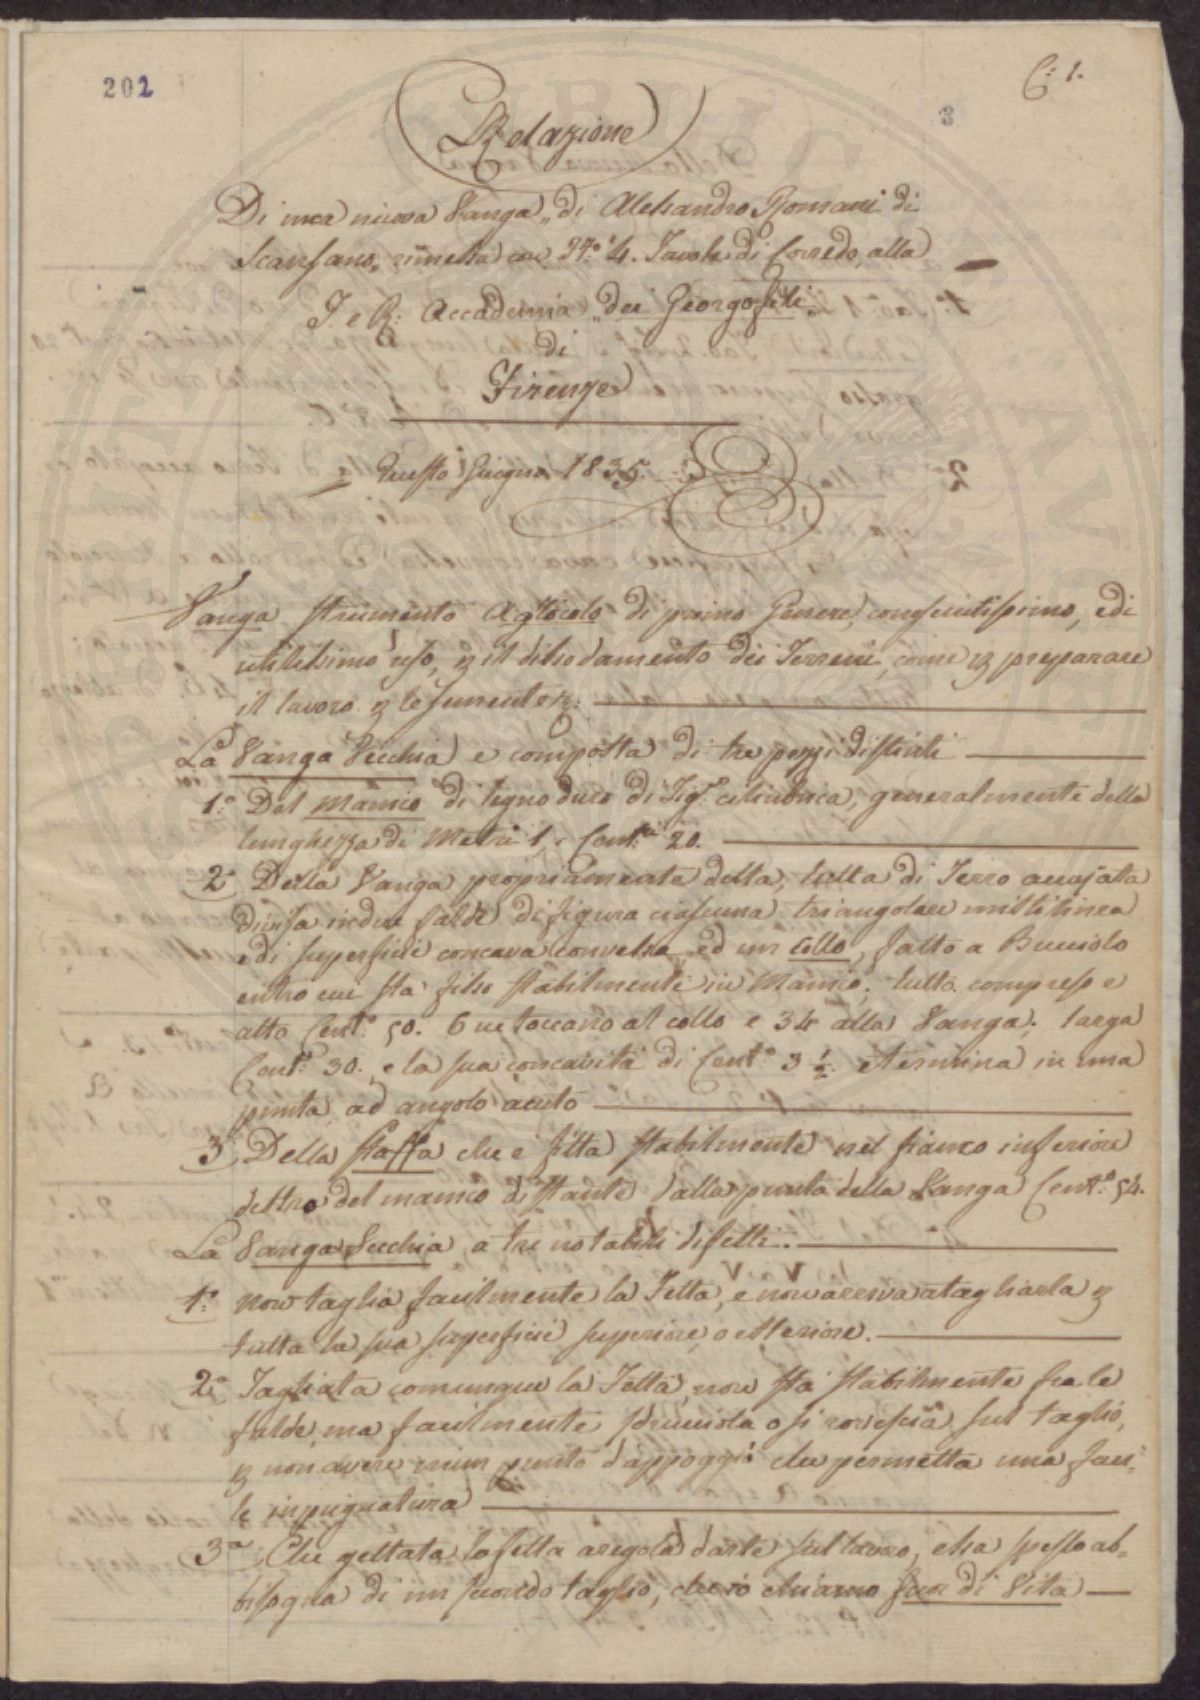 202
C: 1.
3
Relazione
Di una nuova Vanga „ di Alessandro Romani di
Scansano „ rimessa con N.º 4. Tavole di Corredo, alla
I. e R: Accademia „ dei Georgofili „
di
Firenze
Questo Giugno 1835.
Vanga strumento Agricolo di primo Genere, conosciutissimo, e di
utilissimo uso, p il dissodamento dei Terreni, come p preparare
il lavoro p le semente
La Vanga Vecchia e composta di tre pezzi distinti
1.º Del Manico di legno duro di Fig.ª cilindrica, generalmente della
lunghezza di Metri 1, e Cent.i 20.
2.º Della Vanga propriamente detta, tutta di Ferro acciajatta
divisa in due falde di figura ciascuna triangolare mistilinea
e di superficie concava convessa ed un collo, fatto a Bucciolo
entro cui sta fisso stabilmente in Manico; tutto compreso e
alto Cent.i 50. 6 ne toccano al collo e 34 alla Vanga; larga
Cent.i 30. e la sua concavità di Cent.i 3 ½. e termina in una
punta ad angolo acuto
3.º Della staffa che e fitta stabilmente nel fianco inferiore
destro del manico distante dalla punta della Vanga Cent.i 54.
La Vanga Vecchia a tre notabili difetti.
1.º non taglia facilmente la Fetta, e non arriva a tagliarla p
tutta la sua superficie superiore, o esteriore.
2.º Tagliata comunque la Fetta, non sta stabilmente fra le
falde, ma facilmente sdrucciola o si rovescia sul taglio,
p non avere niun punto d'appoggio che permetta una faci-
le inpugnatura
3.º Che gettata la fetta a regola d'arte sul lavoro, essa spesso ab-
bisogna di un secondo taglio, che io chiamo fuor di Vita